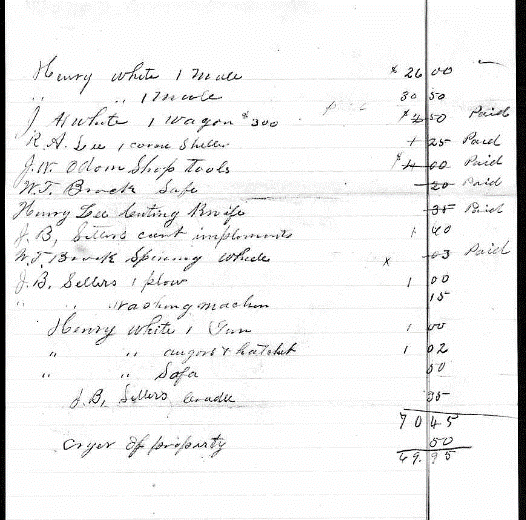 Henry White 1 Mule $ 26 00
" " 1 Mule 30 50
J A White 1 Wagon $300 $ 4 50 Paid
R.A. Lee 1 corne Sheller 1 25 Paid
J.W. Odom Shop Tools $ 4 00 Paid
W.T. Brock Safe 20 Paid
Henry Lee Cutting Knife 35 Paid
J.B. Sellers cant impliments 1 40
W.T. Brock Spinning Wheele x 03 Paid
J.B. Sellers 1 plow 1 00
" " Washing machen 15
Henry White 1 Gun 1 00
" " augor & hatchet 1 02
" " Sofa 50
J.B. Sellers Cradle 35
70 45
Cryer of property 50
69.95